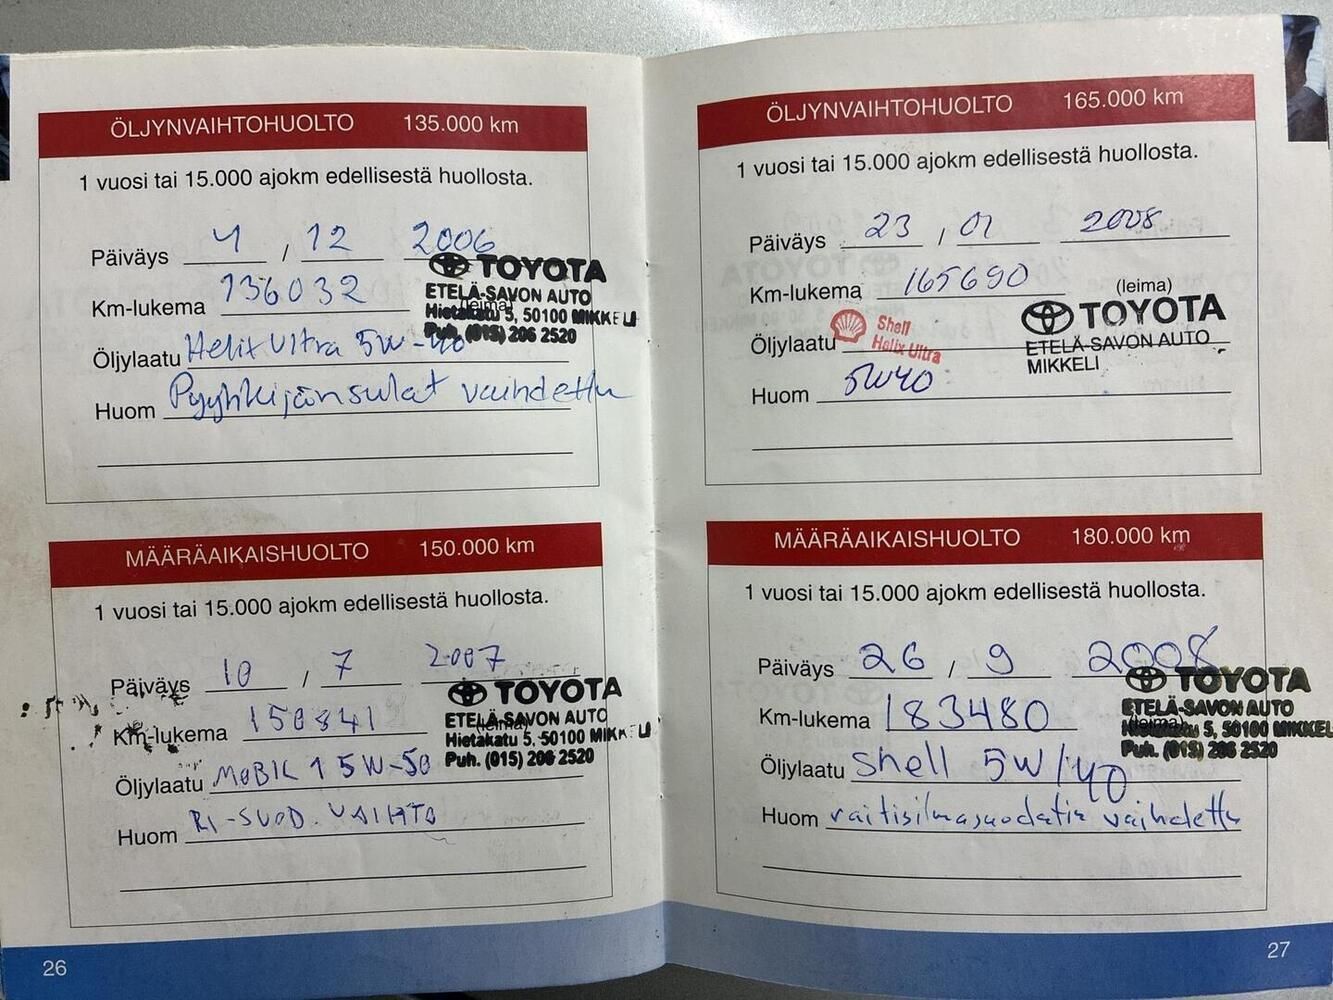 ÖLJYNVAIHTOHUOLTO 135.000 km
1 vuosi tai 15.000 ajokm edellisestä huollosta.
Päiväys 4 , 12 2006
Km-lukema 136032
TOYOTA
ETELÄ-SAVON AUTO
(leima)
Hietakatu 5, 50100 MIKKELI
Puh. (015) 206 2520
Öljylaatu Helix Ultra 5W-40
Huom Pyyhkijänsulat vaihdettu
MÄÄRÄAIKAISHUOLTO 150.000 km
1 vuosi tai 15.000 ajokm edellisestä huollosta.
Päiväys 10 , 7 2007
Km-lukema 150841
TOYOTA
ETELÄ-SAVON AUTO
(leima)
Hietakatu 5, 50100 MIKKELI
Puh. (015) 206 2520
Öljylaatu MOBIL 1 5W-50
Huom RI-SUOD. VAIHTO
26
ÖLJYNVAIHTOHUOLTO 165.000 km
1 vuosi tai 15.000 ajokm edellisestä huollosta.
Päiväys 23 , 01 2008
Km-lukema 165690
(leima)
TOYOTA
ETELÄ-SAVON AUTO
MIKKELI
Öljylaatu Shell
Helix Ultra
Huom 5W40
MÄÄRÄAIKAISHUOLTO 180.000 km
1 vuosi tai 15.000 ajokm edellisestä huollosta.
Päiväys 26 , 9 2008
Km-lukema 183480
TOYOTA
ETELÄ-SAVON AUTO
(leima)
Hietakatu 5, 50100 MIKKELI
Puh. (015) 206 2520
Öljylaatu Shell 5W/40
Huom raitisilmasuodatin vaihdettu
27